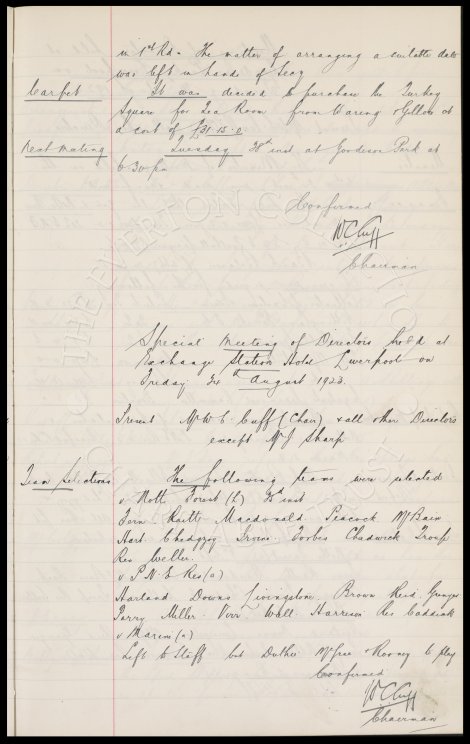 in 1st Rd. The matter of arranging a suitable date
was left in hands of Secy
Carpet It was decided to purchase the Turkey
Square for Tea Room from Waring & Gillow at
a cost of £31.15.0
Next Meeting Tuesday 28th inst at Goodison Park at
6.30 pm
Confirmed
W C Cuff
Chairman
Special Meeting of Directors held at
Exchange Station Hotel Liverpool on
Friday 24th August 1923.
Present Mr W. C. Cuff (Chair) & all other Directors
except Mr J Sharp
Team Selections The following teams were selected
v Notts Forest (h) 25th inst
Fern Raitt Macdonald Peacock McBain
Hart Chedgzoy Irvine Forbes Chadwick Troup
Res Weller.
v P.N.E Res (a)
Harland Downs Livingstone. Brown Reid. Grenyer
Parry Miller. Virr Wall. Harrison Res Caddick
v Marine (a)
Left to Staff but Duthie & Rooney to play
Confirmed
W C Cuff
Chairman
THE EVERTON